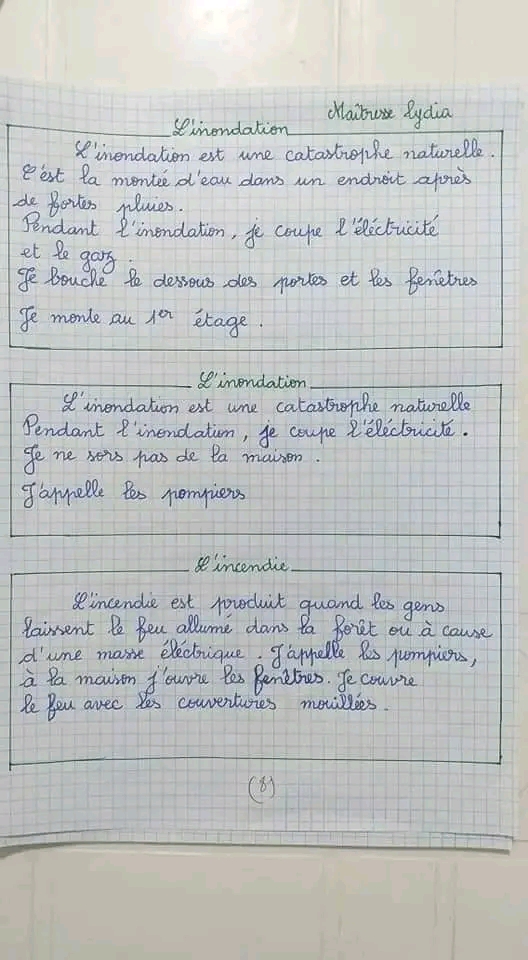 Maîtresse Lydia
L'inondation
L'inondation est une catastrophe naturelle.
C'est la montée d'eau dans un endroit après
de fortes pluies.
Pendant l'inondation, je coupe l'éléctricité
et le gaz.
Je bouche le dessous des portes et les fenêtres
Je monte au 1er étage.
L'inondation
L'inondation est une catastrophe naturelle
Pendant l'inondation, je coupe l'éléctricité.
Je ne sors pas de la maison.
J'appelle les pompiers
L'incendie
L'incendie est produit quand les gens
laissent le feu allumé dans la forêt ou à cause
d'une masse éléctrique. J'appelle les pompiers,
à la maison j'ouvre les fenêtres. Je couvre
le feu avec les couvertures mouillées.
(8)